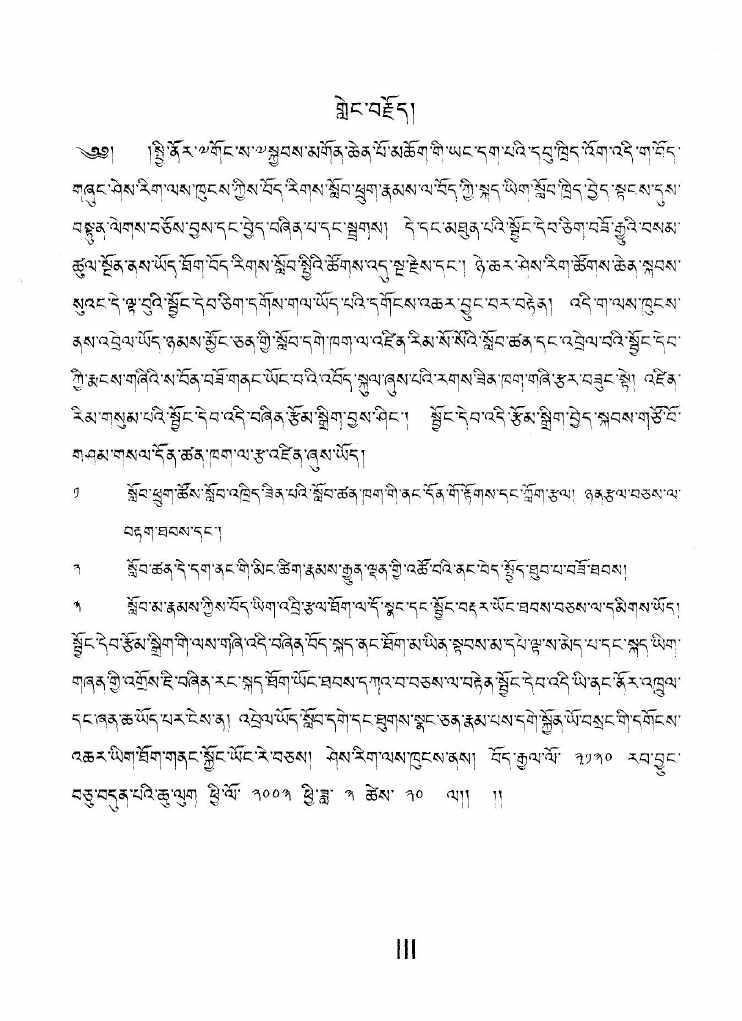 གླེང་བརྗོད།
༄༅། །སྤྱི་ནོར་༧གོང་ས་༧སྐྱབས་མགོན་ཆེན་པོ་མཆོག་གི་ཡང་དག་པའི་དབུ་ཁྲིད་འོག་འདི་ག་བོད་
གཞུང་ཤེས་རིག་ལས་ཁུངས་ཀྱིས་བོད་རིགས་སློབ་ཕྲུག་རྣམས་ལ་བོད་ཀྱི་སྐད་ཡིག་སློབ་ཁྲིད་བྱེད་སྟངས་དུས་
བསྟུན་ལེགས་བཅོས་བྱས་དང་བྱེད་བཞིན་པ་དང་སྦྲགས། དེ་དང་མཐུན་པའི་སྦྱོང་དེབ་ཅིག་བཟོ་རྒྱུའི་བསམ་
ཚུལ་སྔོན་ནས་ཡོད་ཐོག་བོད་རིགས་སློབ་སྤྱིའི་ཚོགས་འདུ་སྔ་རྗེས་དང་། ཉེ་ཆར་ཤེས་རིག་ཚོགས་ཆེན་སྐབས་
སུའང་དེ་ལྟ་བུའི་སྦྱོང་དེབ་ཅིག་དགོས་གལ་ཡོད་པའི་དགོངས་འཆར་བྱུང་བར་བརྟེན། འདི་ག་ལས་ཁུངས་
ནས་འབྲེལ་ཡོད་ཉམས་མྱོང་ཅན་གྱི་སློབ་དགེ་ཁག་ལ་འཛིན་རིམ་སོ་སོའི་སློབ་ཚན་དང་འབྲེལ་བའི་སྦྱོང་དེབ་
ཀྱི་རྨངས་གཞིའི་ས་བོན་བཟོ་གནང་ཡོང་བའི་འབོད་སྐུལ་ཞུས་པའི་རགས་ཟིན་ཁག་གཞི་རྩར་བཟུང་སྟེ། འཛིན་
རིམ་གསུམ་པའི་སྦྱོང་དེབ་འདི་བཞིན་རྩོམ་སྒྲིག་བྱས་ཤིང་། སྦྱོང་དེབ་འདི་རྩོམ་སྒྲིག་བྱེད་སྐབས་གཙོ་བོ་
གཤམ་གསལ་དོན་ཚན་ཁག་ལ་རྩ་འཛིན་ཞུས་ཡོད།
༡ སློབ་ཕྲུག་ཚོས་སློབ་འཁྲིད་ཟིན་པའི་སློབ་ཚན་ཁག་གི་ནང་དོན་གོ་རྟོགས་དང་ཀློག་རྩལ། ཉན་རྩལ་བཅས་ལ་
བརྟག་ཐབས་དང་།
༢ སློབ་ཚན་དེ་དག་ནང་གི་མིང་ཚིག་རྣམས་རྒྱུན་ལྡན་གྱི་འཚོ་བའི་ནང་བེད་སྤྱོད་ཐུབ་པ་བཟོ་ཐབས།
༣ སློབ་མ་རྣམས་ཀྱིས་བོད་ཡིག་འབྲི་རྩལ་ཐོག་ལ་དོ་སྣང་དང་སྦྱོང་བརྡར་ཡོང་ཐབས་བཅས་ལ་དམིགས་ཡོད།
སྦྱོང་དེབ་རྩོམ་སྒྲིག་གི་ལས་གཞི་འདི་བཞིན་བོད་སྐད་ནང་ཐོག་མ་ཡིན་སྟབས་མ་དཔེ་ལྟ་ས་མེད་པ་དང་སྐད་ཡིག་
གཞན་གྱི་འགྲོས་ཇི་བཞིན་རང་སྐད་ཐོག་ཡོང་ཐབས་དཀའ་བ་བཅས་ལ་བརྟེན་སྦྱོང་དེབ་འདི་ཡི་ནང་ནོར་འཁྲུལ་
དང་ཞན་ཆ་ཡོད་པར་ངེས་ན། འབྲེལ་ཡོད་སློབ་དགེ་དང་ཐུགས་སྣང་ཅན་རྣམ་པས་དགེ་སྐྱོན་ཡོ་བསྲང་གི་དགོངས་
འཆར་ཡིག་ཐོག་གནང་སྐྱོང་ཡོང་རེ་བཅས། ཤེས་རིག་ལས་ཁུངས་ནས། བོད་རྒྱལ་ལོ་ ༢༡༣༠ རབ་བྱུང་
བཅུ་བདུན་པའི་ཆུ་ལུག ཕྱི་ལོ་ ༢༠༠༣ ཕྱི་ཟླ་ ༣ ཚེས་ ༢༠ ལ།། །།
III